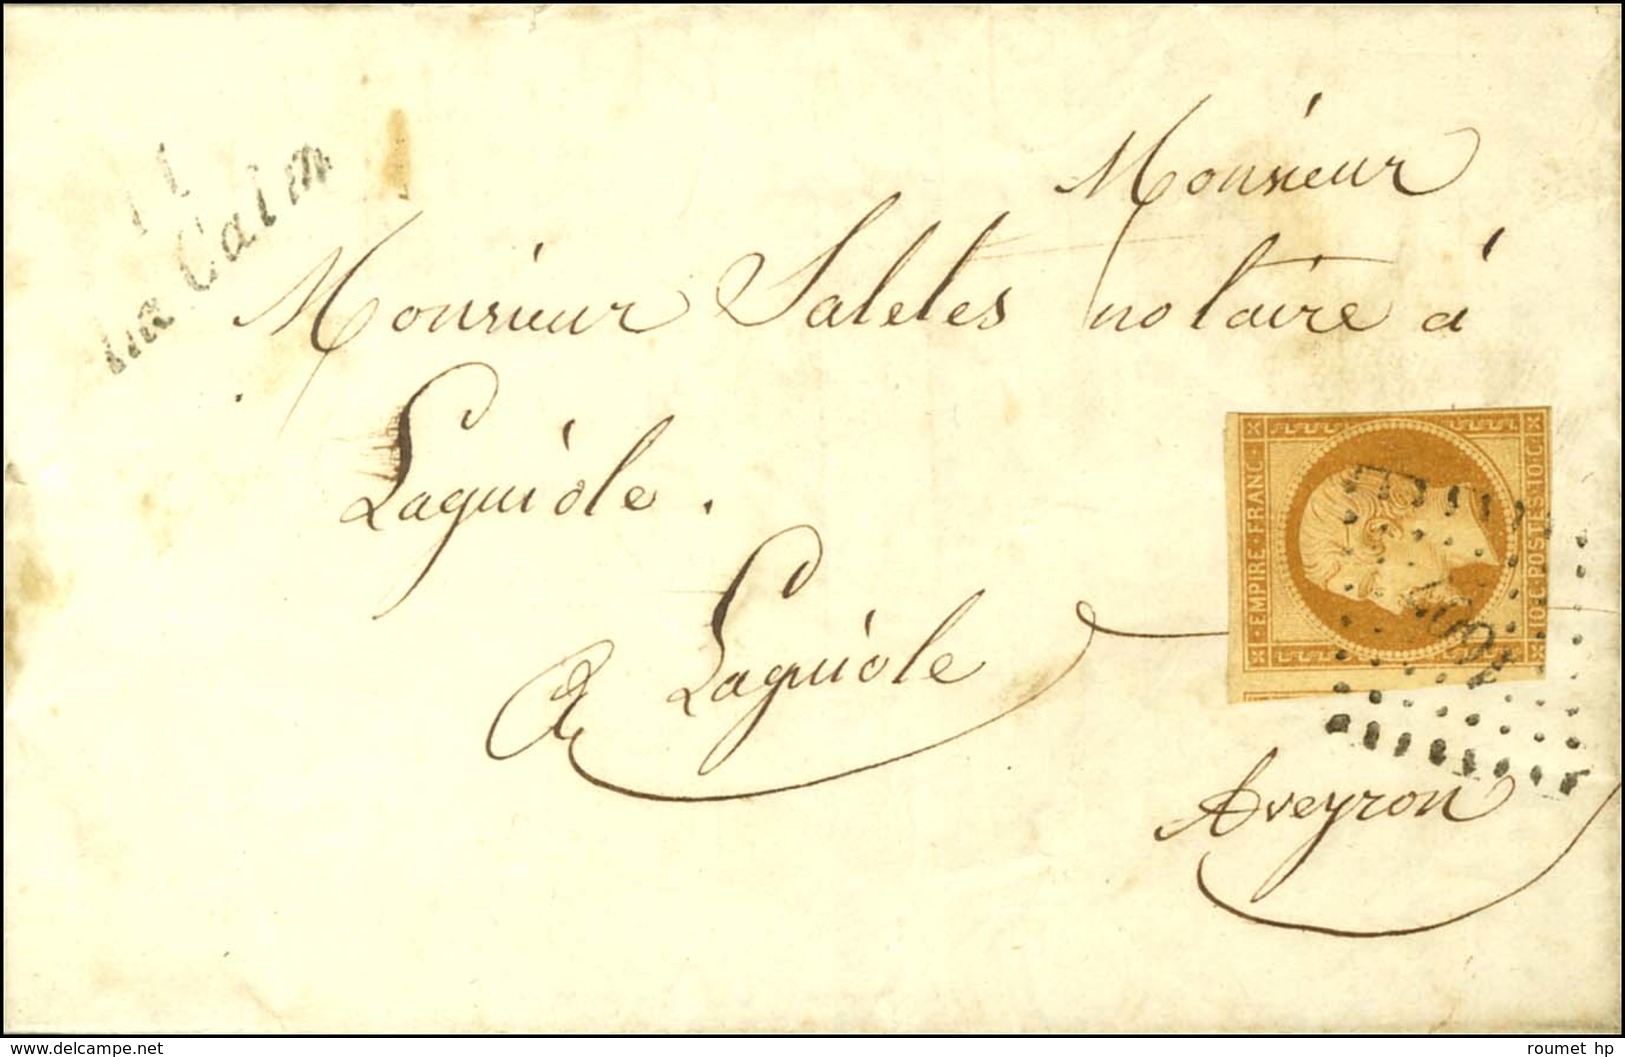 11
La Calm
Monsieur
Monsieur Saletes notaire à
Laguiole.
A Laguiole
Aveyron
EMPIRE · FRANC ·
10 · C · POSTES · 10 · C ·
delcampe.net
roumet hp